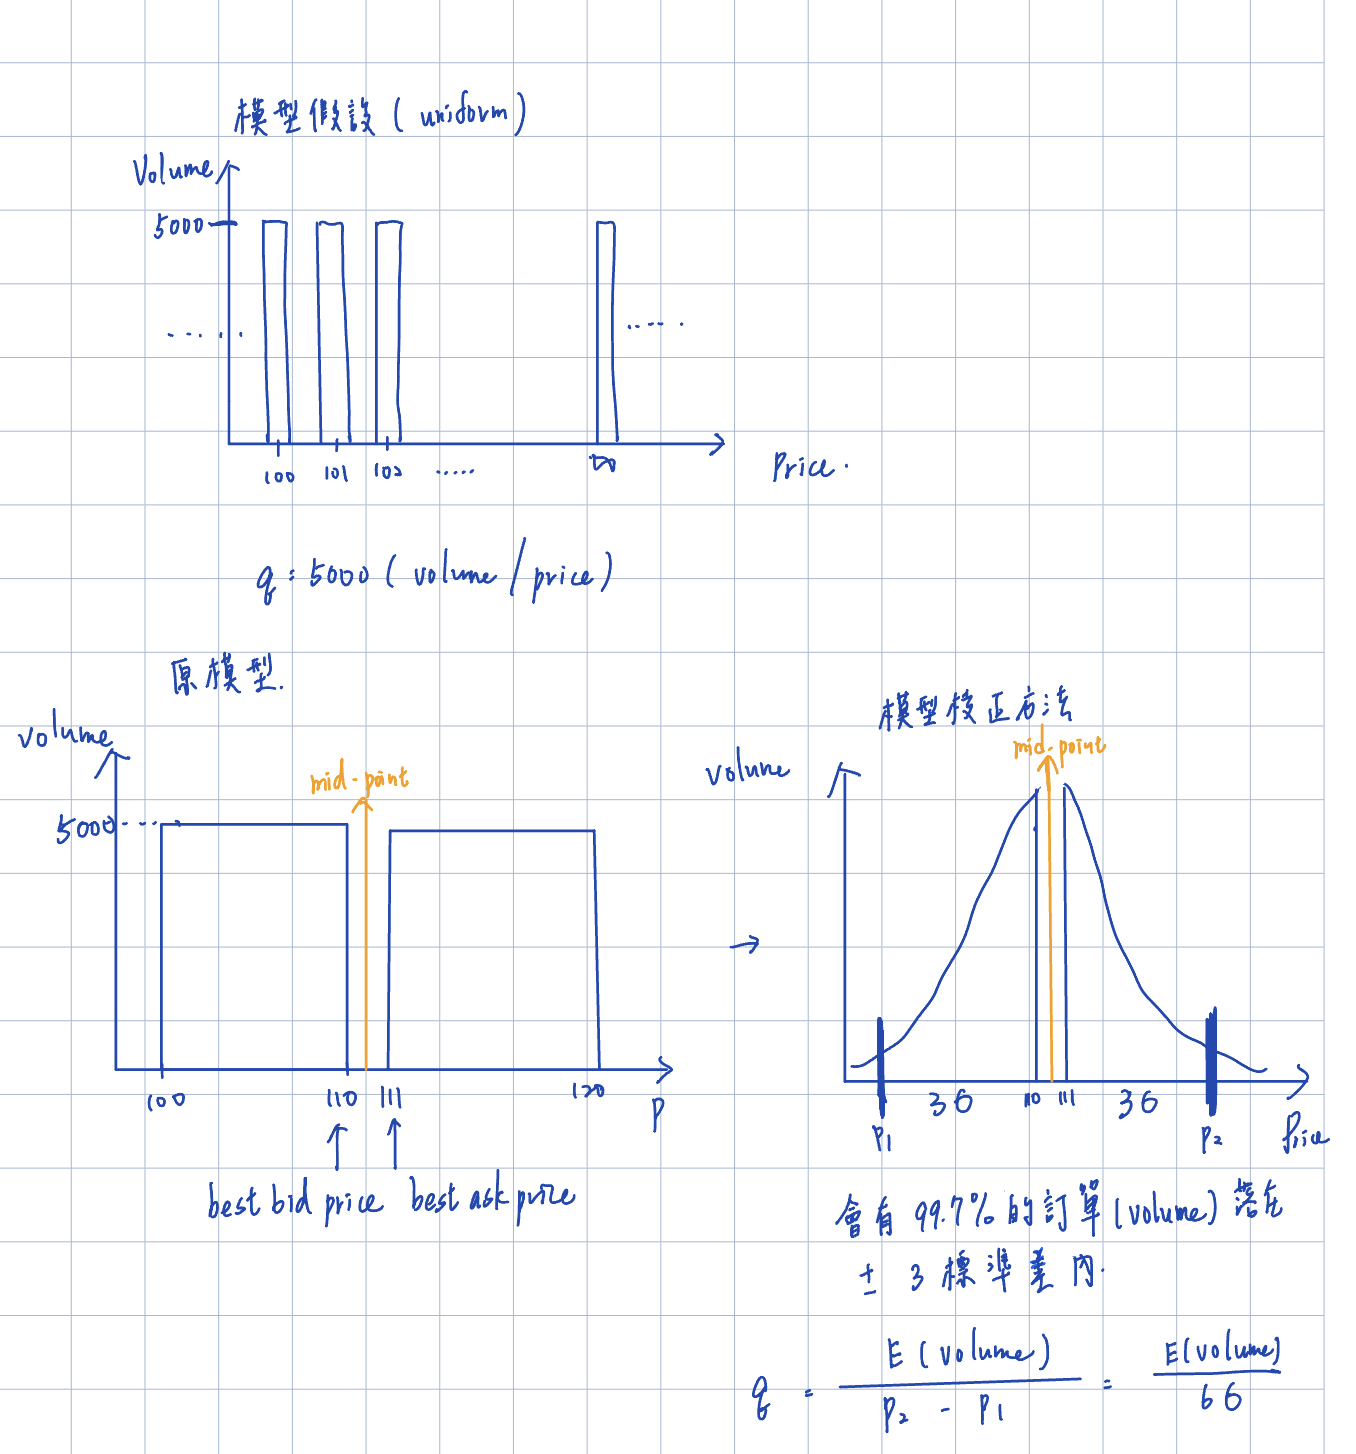 模型假設 ( uniform )
Volume
5000
......
.....
100 101 102 .....
Price.
q = 5000 ( volume / price )
原模型.
volume
5000 ...
mid-point
100 110 111 120
P
best bid price best ask price
→
模型校正方法
mid-point
volume
3σ 110 111 3σ
P₁ P₂ Price
會有 99.7% 的訂單 (volume) 落在
± 3 標準差內.
q = E ( volume ) / P₂ - P₁ = E(volume) / 6σ